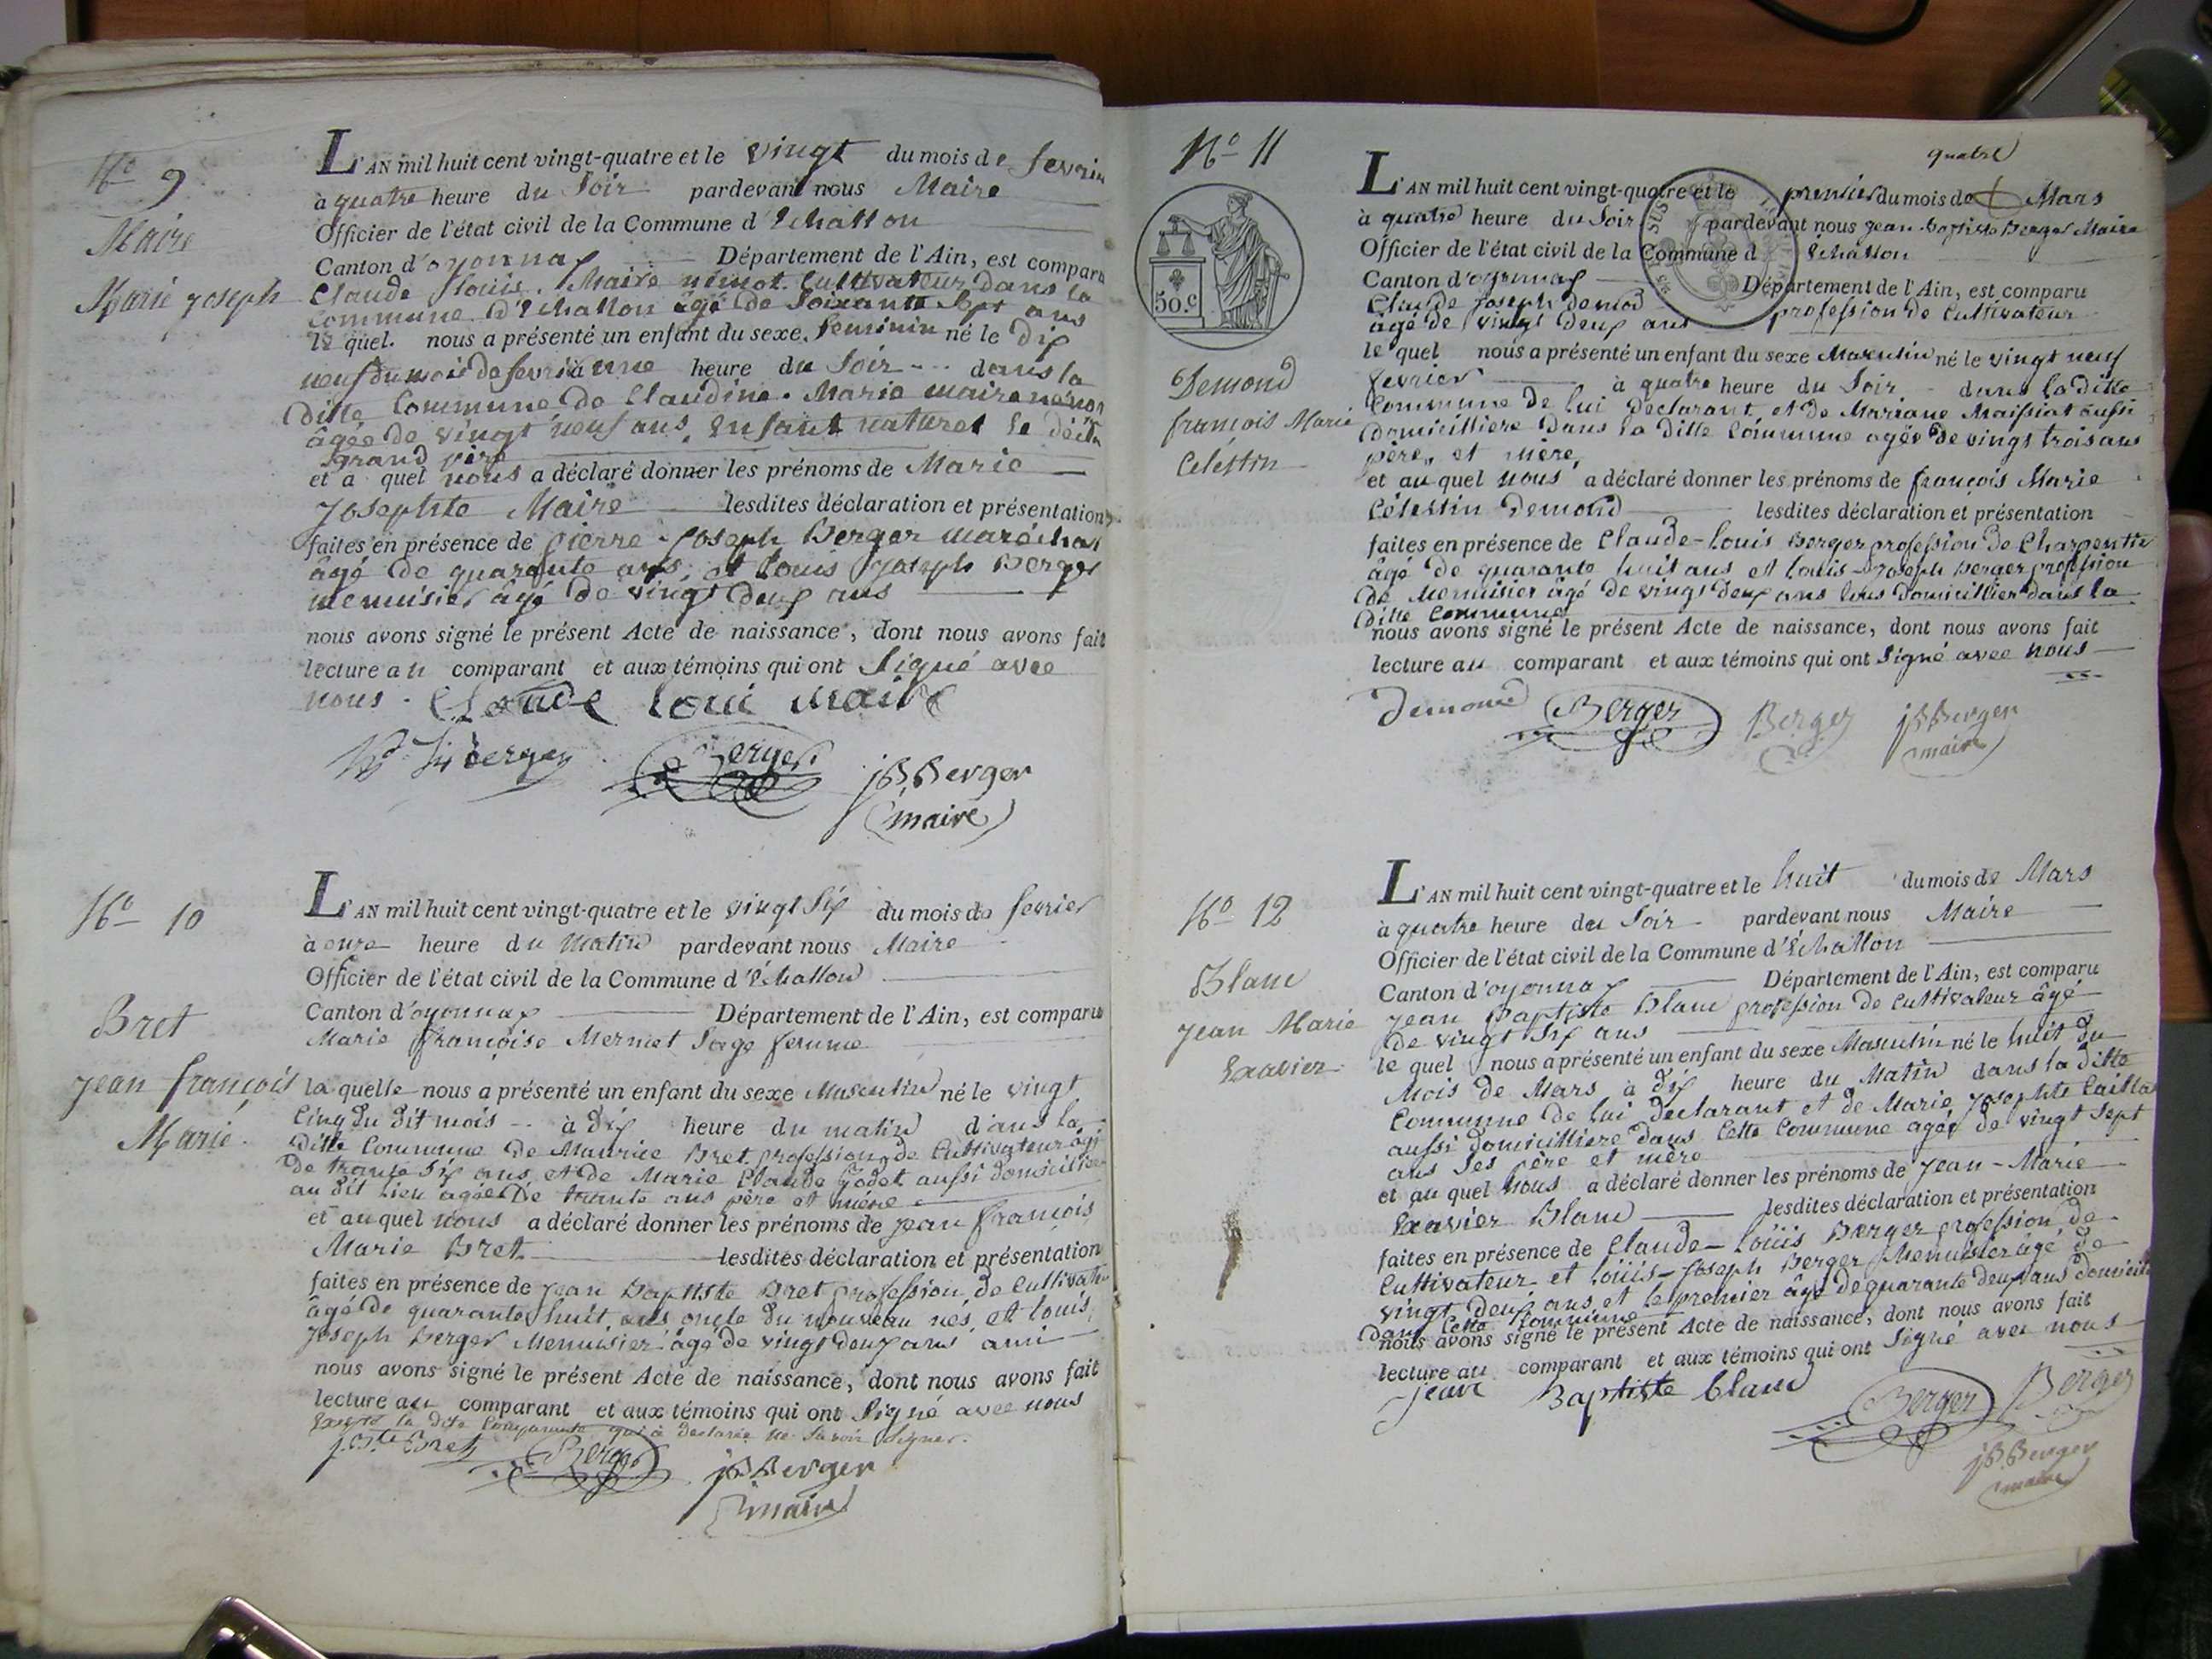 No 9
Maire
Marie Joseph
L'AN mil huit cent vingt-quatre et le vingt du mois de fevrier
à quatre heure du Soir pardevant nous Maire
Officier de l'état civil de la Commune d'Echallon
Canton d'oyonnax Département de l'Ain, est comparu
Claude Louis Maire némoz Cultivateur dans la
Commune d'Echallon âgé de Soixante Sept ans
le quel nous a présenté un enfant du sexe feminin né le dix
neuf du mois de fevrier à une heure du Soir dans la
ditte Commune de Claudine Marie maire
âgée de vingt neuf ans, Enfant naturel le
grand père
et a quel nous a déclaré donner les prénoms de Marie
Josephte Maire lesdites déclaration et présentation
faites en présence de pierre Joseph Berger maréchal
âgé de quarante ans, et Louis Joseph Berger
menuisier âgé de vingt deux ans
nous avons signé le présent Acte de naissance, dont nous avons fait
lecture au comparant et aux témoins qui ont Signé avec
nous. Claude Loui Maire
Berger Berger jB Berger
maire
No 10
Bret
Jean françois
Marie
L'AN mil huit cent vingt-quatre et le vingt Six du mois de fevrier
à onze heure du Matin pardevant nous Maire
Officier de l'état civil de la Commune d'Echallon
Canton d'oyonnax Département de l'Ain, est comparu
Marie françoise Mermet Sage femme
la quelle nous a présenté un enfant du sexe Masculin né le vingt
Cinq du dit mois à dix heure du matin dans la
ditte Commune de Maurice Bret profession de Cultivateur âgé
de trante Six ans et de Marie Claude Godet aussi domiciliée
au dit lieu agée de trante ans père et mère
et au quel nous a déclaré donner les prénoms de Jean françois
Marie Bret lesdites déclaration et présentation
faites en présence de Jean Baptiste Bret profession de Cultivateur
âgé de quarante huit ans oncle du nouveau nés, et Louis
Joseph Berger Menuisier âgé de vingt deux ans ami
nous avons signé le présent Acte de naissance, dont nous avons fait
lecture au comparant et aux témoins qui ont Signé avec nous
Excepté la dite Comparante qui a declarée ne Savoir Signer.
j.Bte Bret Berger jB Berger
maire
quatre
No 11
50.c
Demond
françois Marie
Célestin
L'AN mil huit cent vingt-quatre et le premier du mois de Mars
à quatre heure du Soir pardevant nous Jean Baptiste Berger Maire
Officier de l'état civil de la Commune d Echallon
Canton d'oyonnax Département de l'Ain, est comparu
Claude Joseph Demond profession de Cultivateur
âgé de vingt deux ans
le quel nous a présenté un enfant du sexe Masculin né le vingt neuf
fevrier à quatre heure du Soir dans la ditte
Commune de lui Déclarant et de Mariane Maissiat aussi
Domicilliere Dans la Ditte Commune agée de vingt trois ans
père, et mère,
et au quel nous a déclaré donner les prénoms de françois Marie
Célestin Demond lesdites déclaration et présentation
faites en présence de Claude-Louis Berger profession de Charpentier
âgé de quarante huit ans et Louis-Joseph Berger profession
de Menuisier âgé de vingt deux ans tous domicillier dans la
ditte Commune
nous avons signé le présent Acte de naissance, dont nous avons fait
lecture au comparant et aux témoins qui ont Signé avec nous
Demond Berger Berger jB Berger
maire
No 12
Blanc
Jean Marie
Exavier
L'AN mil huit cent vingt-quatre et le huit du mois de Mars
à quatre heure du Soir pardevant nous Maire
Officier de l'état civil de la Commune d'Echallon
Canton d'oyonnax Département de l'Ain, est comparu
Jean Baptiste Blanc profession de Cultivateur âgé
de vingt Six ans
le quel nous a présenté un enfant du sexe Masculin né le huit du
Mois de Mars à dix heure du Matin dans la ditte
Commune de lui Declarant et de Marie Josephte
aussi domicilliere dans Cette Commune agée de vingt Sept
ans Ses père et mère
et au quel nous a déclaré donner les prénoms de Jean-Marie
Exavier Blanc lesdites déclaration et présentation
faites en présence de Claude-Loüis Berger profession de
Cultivateur et Loüis-Joseph Berger Menuisier âgé de
vingt deux ans et le premier âgé de quarante deux ans domicilié
dans Cette Commune
nous avons signé le présent Acte de naissance, dont nous avons fait
lecture au comparant et aux témoins qui ont Signé avec nous
Jean Baptiste blanc Berger Berger
jB Berger
maire